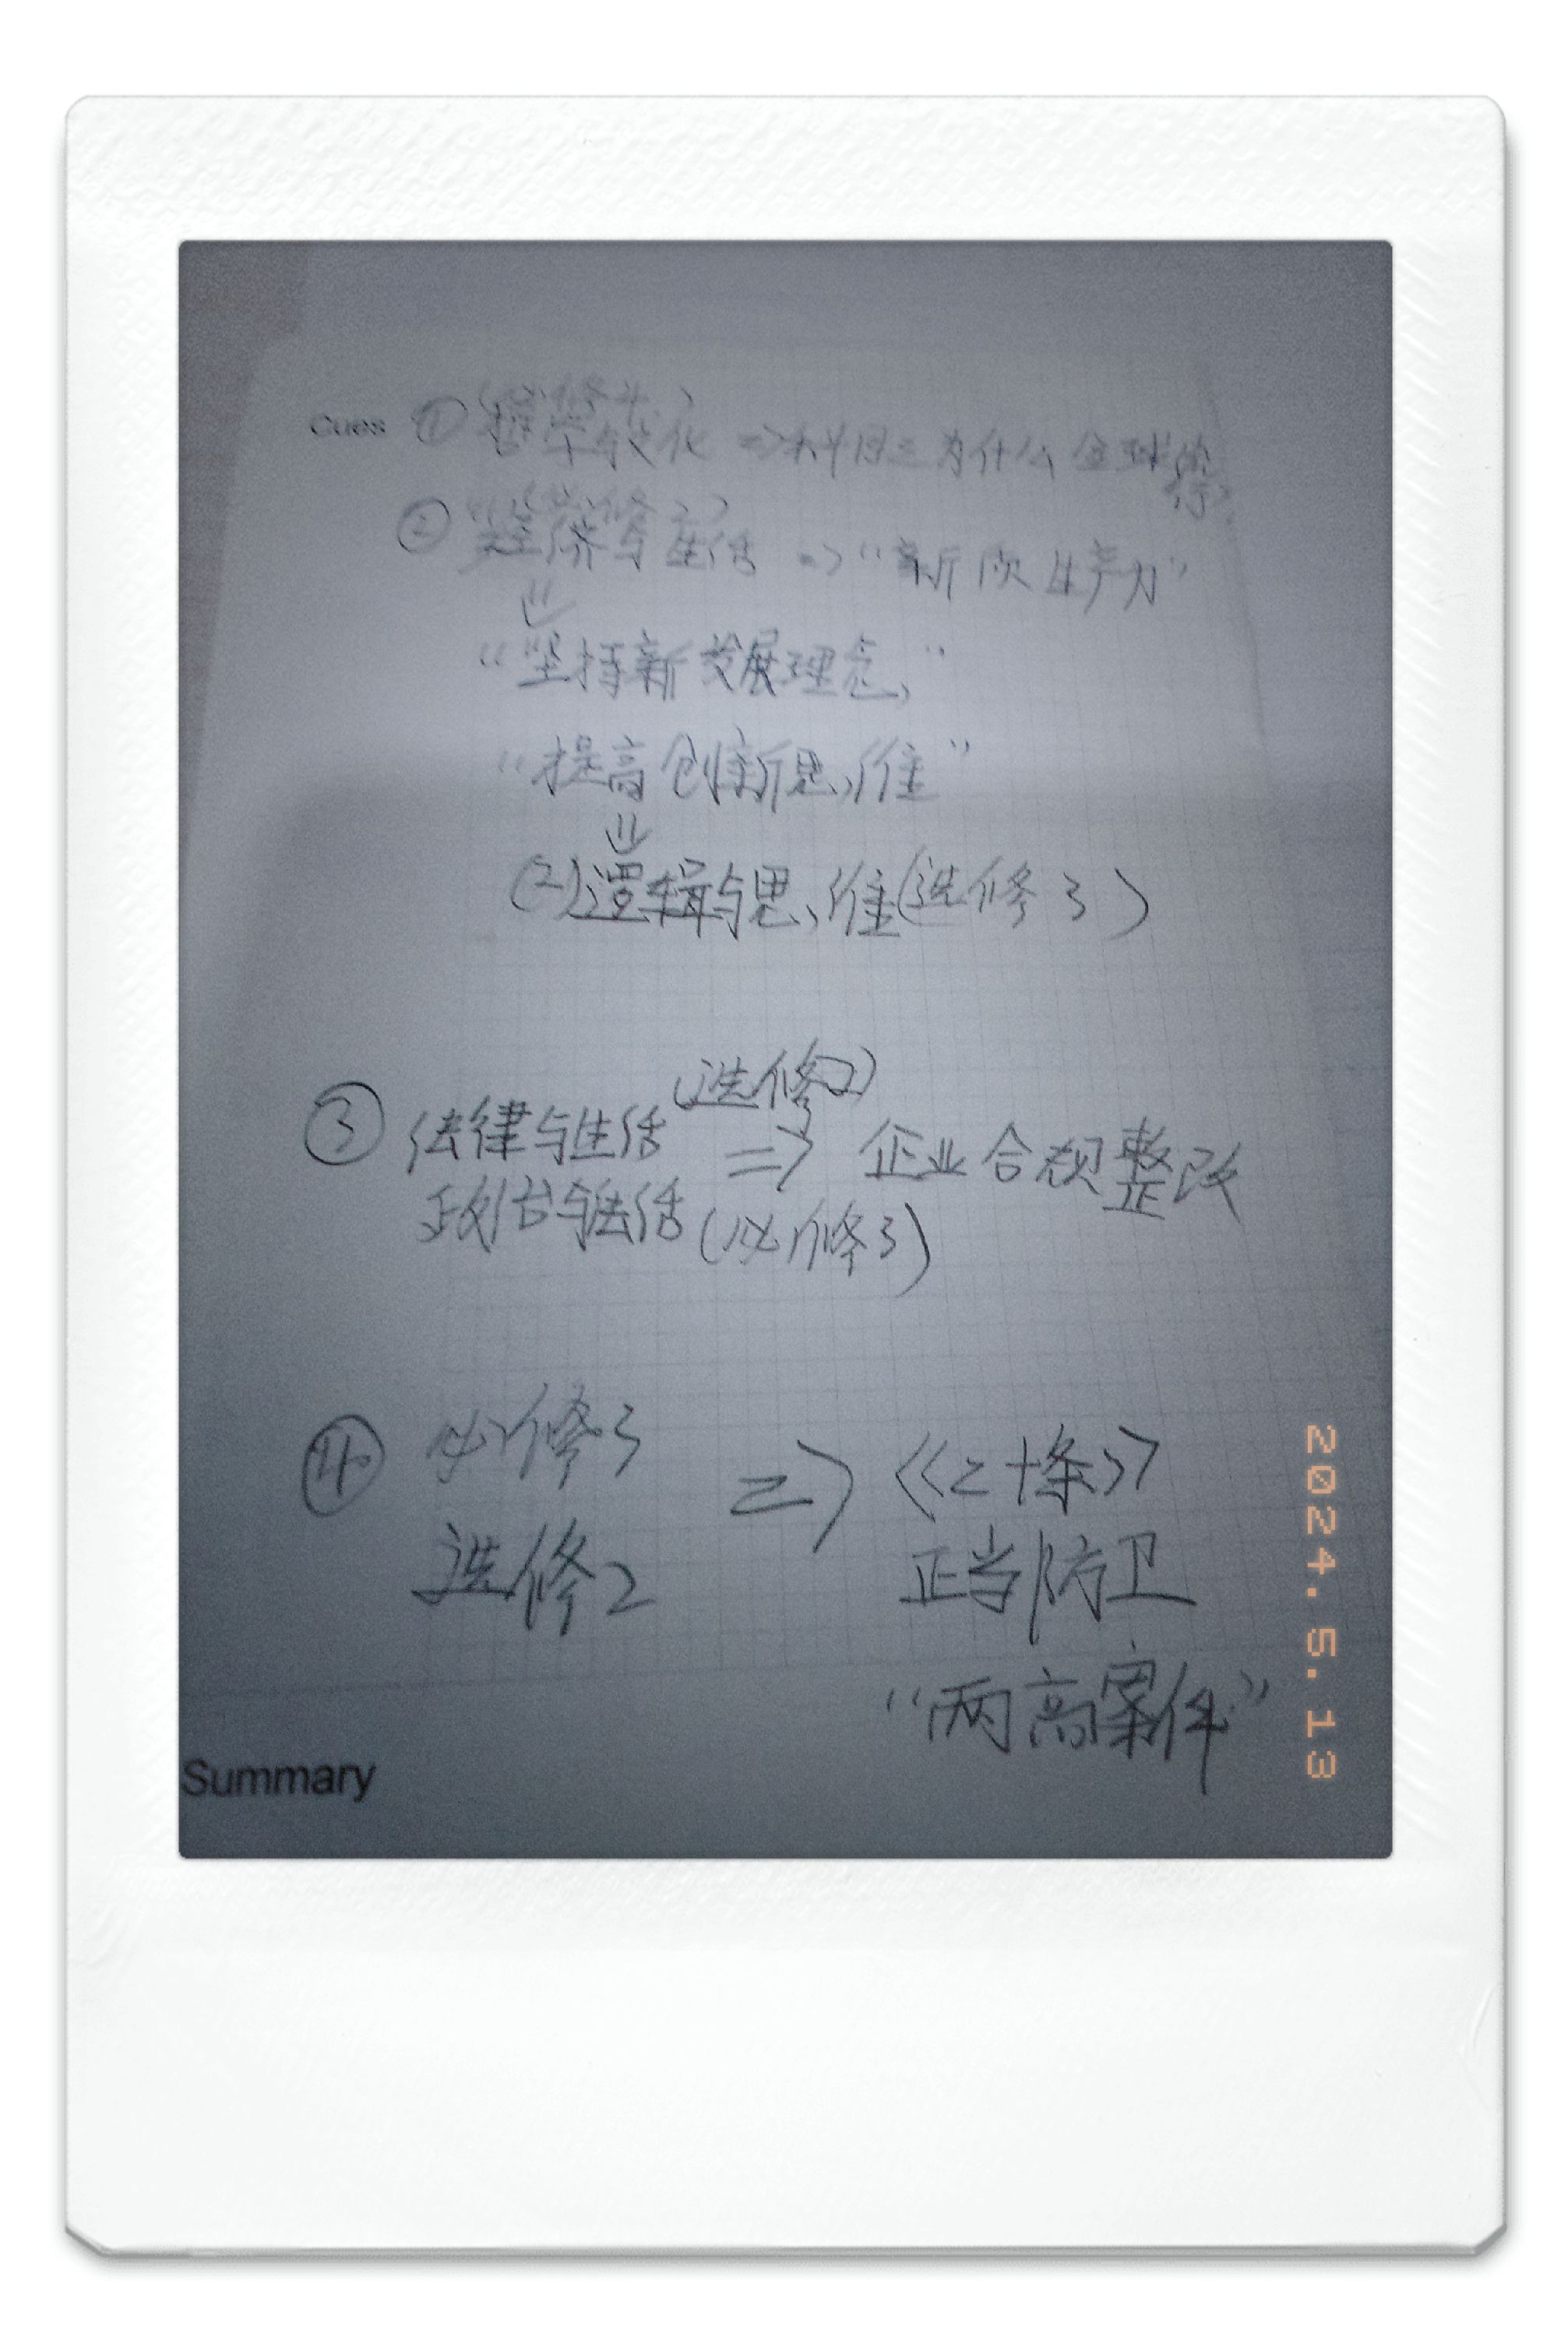 Cues ① (必修4)
哲学与文化 => 科目三为什么全球
② (必修2)
经济与生活 => “新质生产力”
“坚持新发展理念”
“提高创新思维”
(2)逻辑与思维(选修3)
③ 法律与生活 (选修2) => 企业合规整改
政治与法治 (必修3)
④ 必修3 => 《二十条》
选修2 正当防卫
“两高案件”
Summary
2024.5.13